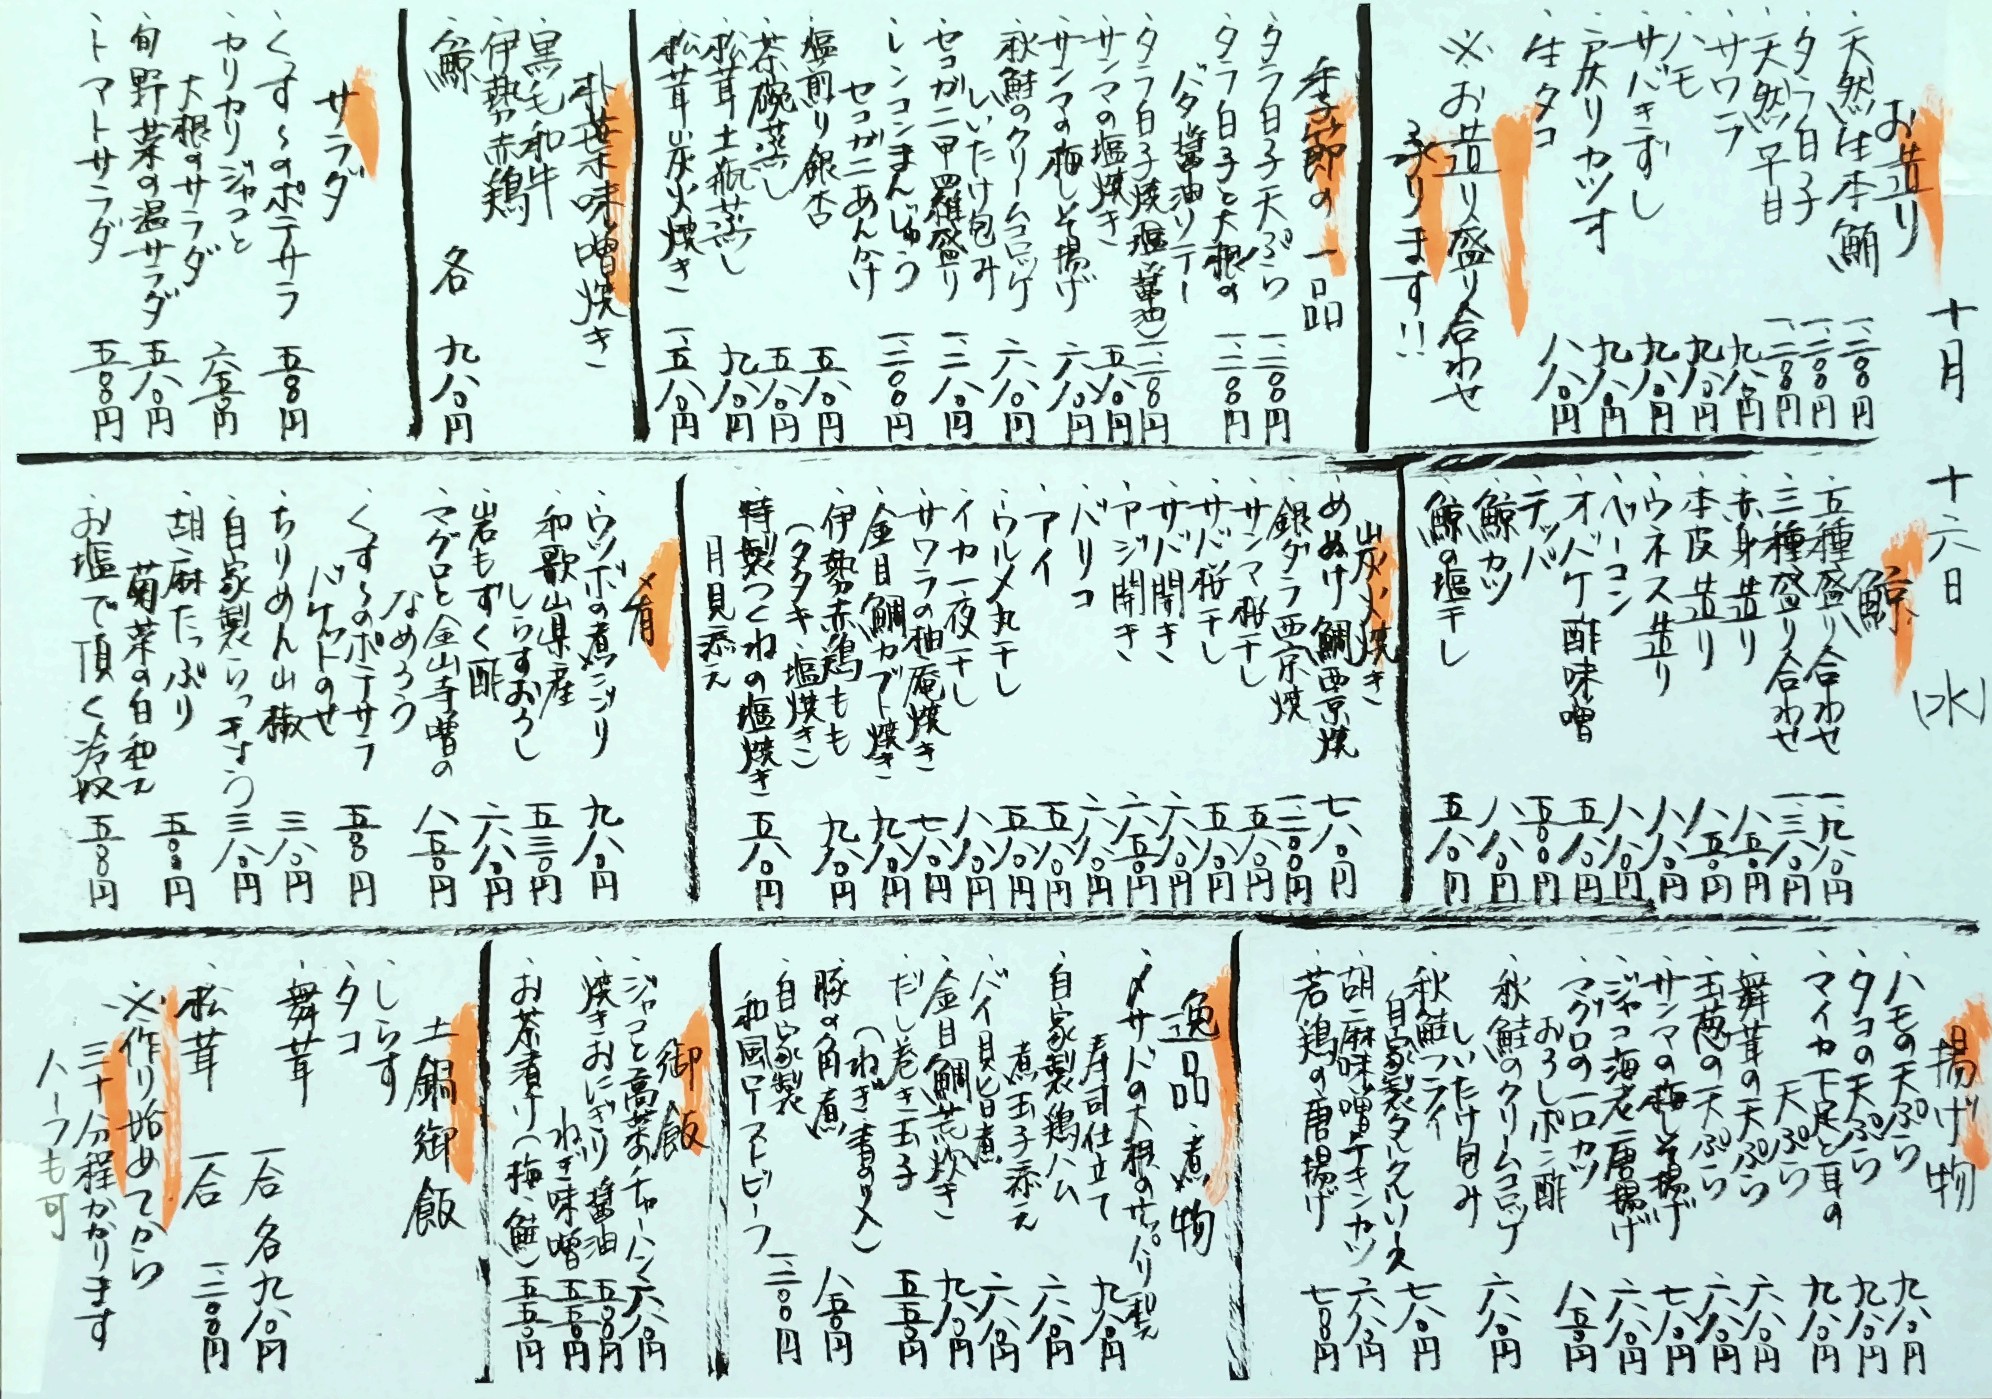 十月 十六日 (水)
お造り
、天然生本鮪 一、二〇〇円
、タラ白子 一、二〇〇円
、天然平目 一、二〇〇円
、サワラ 九八〇円
、ハモ 九八〇円
、サバきずし 九八〇円
、戻りカツオ 九八〇円
、生タコ 八八〇円
※お造り盛り合わせ
承ります!!
季節の一品
、タラ白子天ぷら 一、二〇〇円
、タラ白子と大根の
バタ醤油ソテー 一、二〇〇円
、タラ白子焼(塩、醤油) 一、二〇〇円
、サンマの塩焼き 五八〇円
、サンマの梅しそ揚げ 六八〇円
、秋鮭のクリームコロッケ
しいたけ包み 六八〇円
、セコガニ甲羅盛り 一、二八〇円
、レンコンまんじゅう
セコガニあんかけ 一、二〇〇円
、塩煎り銀杏 五八〇円
、茶碗蒸し 五八〇円
、松茸土瓶蒸し 九八〇円
、松茸炭火焼き 一、五八〇円
朴葉味噌焼き
、黒毛和牛
、伊勢赤鶏
、鯨 各 九八〇円
サラダ
、くす〜のポテサラ 五〇〇円
、カリカリジャコと
大根のサラダ 六五〇円
、旬野菜の温サラダ 五八〇円
、トマトサラダ 五〇〇円
鯨
、五種盛り合わせ 一、九八〇円
、三種盛り合わせ 一、三八〇円
、赤身造り 八五〇円
、本皮造り 八五〇円
、ウネス造り 八八〇円
、ベーコン 八八〇円
、オバケ酢味噌 五八〇円
、テッパ 五〇〇円
、鯨カツ 八八〇円
、鯨の塩干し 五八〇円
炭火焼き
、めぬけ鯛西京焼 七八〇円
、銀ダラ西京焼 一、二〇〇円
、サンマ桜干し 五八〇円
、サバ桜干し 五八〇円
、サバ開き 六八〇円
、アジ開き 六五〇円
、バリコ 六八〇円
、アイ 五八〇円
、ウルメ丸干し 五八〇円
、イカ一夜干し 八八〇円
、サワラの柚庵焼き 七八〇円
、金目鯛カブト焼き 九八〇円
、伊勢赤鶏もも
(タタキ、塩焼き) 九八〇円
、特製つくねの塩焼き
月見添え 五八〇円
肴
、ウツボの煮こごり 九八〇円
、和歌山県産
しらすおろし 五三〇円
、岩もずく酢 六八〇円
、マグロと金山寺噌の
なめろう 八五〇円
、くす〜のポテサラ
バケットのせ 五〇〇円
、ちりめん山椒 三八〇円
、自家製らっきょう 三八〇円
、胡麻たっぷり
菊菜の白和え 五〇〇円
、お塩で頂く冷奴 五〇〇円
揚げ物
、ハモの天ぷら 九八〇円
、タコの天ぷら 九八〇円
、マイカ下足と耳の
天ぷら 九八〇円
、舞茸の天ぷら 六八〇円
、玉葱の天ぷら 六八〇円
、サンマの梅しそ揚げ 七八〇円
、ジャコ海老唐揚げ 六八〇円
、マグロの一口カツ
おろしポン酢 八五〇円
、秋鮭のクリームコロッケ
しいたけ包み 六八〇円
、秋鮭フライ
自家製タルタルソース 七八〇円
、胡麻味噌チキンカツ 六八〇円
、若鶏の唐揚げ 七〇〇円
逸品、煮物
、〆サバの大根のサッパリ和え
寿司仕立て 九八〇円
、自家製鶏ハム
煮玉子添え 六八〇円
、バイ貝旨煮 六八〇円
、金目鯛荒炊き 九八〇円
、だし巻き玉子
(ねぎ、青のり) 五五〇円
、豚の角煮 八五〇円
、自家製
和風ローストビーフ 一、二〇〇円
御飯
、ジャコと高菜のチャーハン 六八〇円
、焼きおにぎり 醤油 五〇〇円
ねぎ味噌 五五〇円
、お茶漬け(梅、鮭) 五五〇円
土鍋御飯
、しらす
、タコ
、舞茸 一合 各九八〇円
、松茸 一合 一、二〇〇円
※作り始めてから
三十分程かかります
ハーフも可